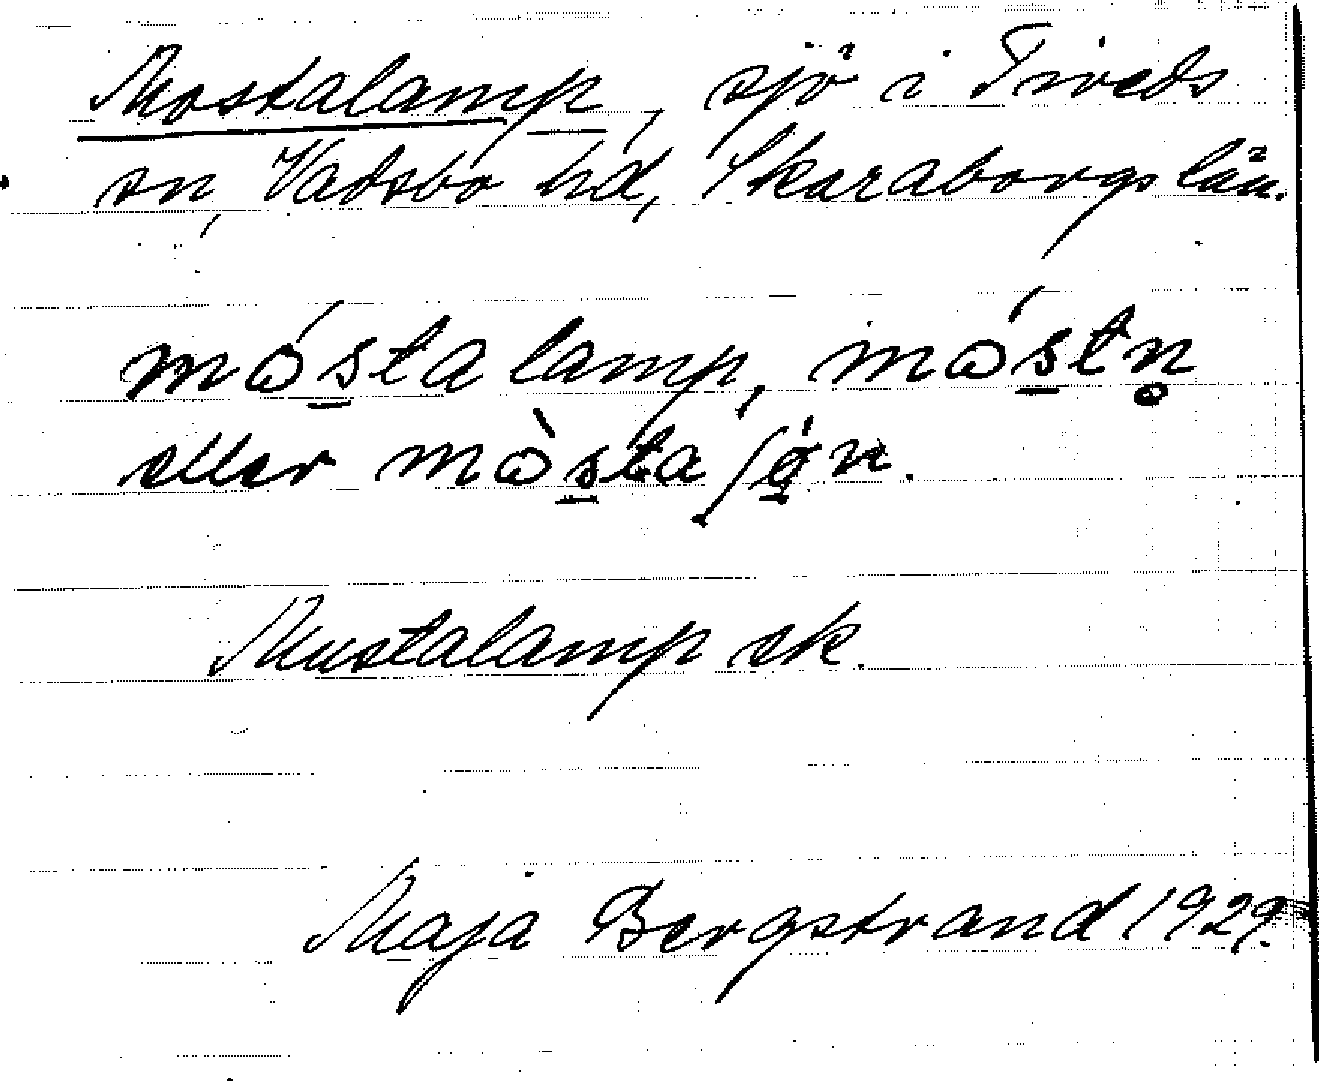 Mostalamp, sjö i Tiveds
sn, Vadsbo hd, Skaraborgs län.
mósta lamp, móstn̥
eller mòsta ʃǿn.
Mustalamp sk.
Maja Bergstrand 1929.